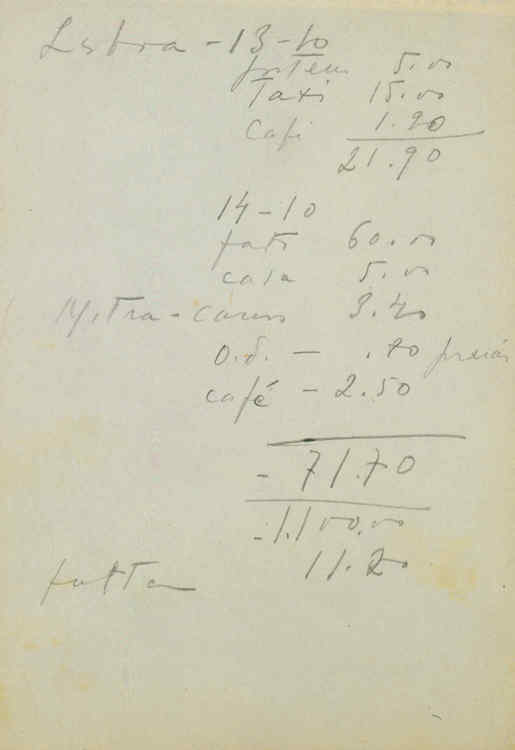 Lisboa - 13-10
5.00
Taxi 15.00
Café 1.90
21.90
14-10
fato 60.00
casa 5.00
3.40
o.d. - .70
café - 2.50
- 71.70
- 1.100.00
11.20
falta